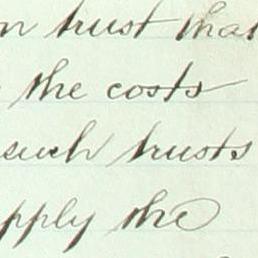 n trust that
the costs
such trusts
pply the